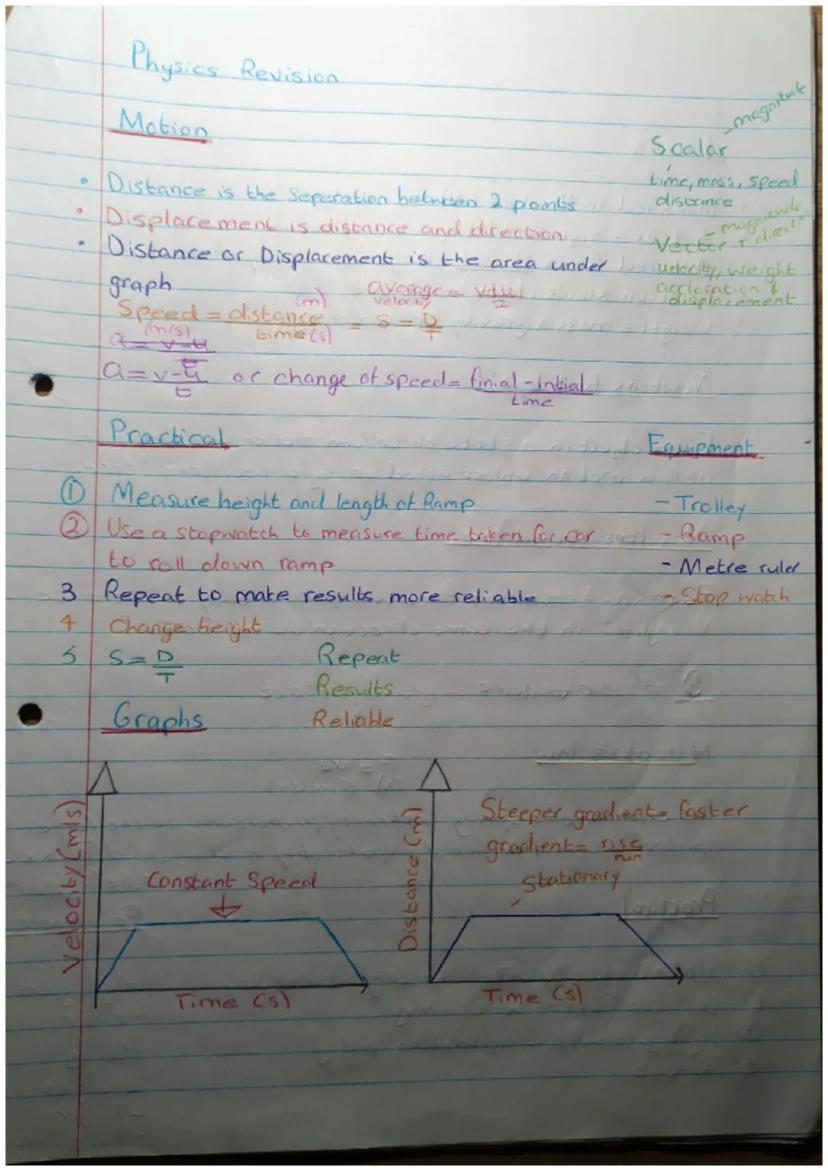 Physics Revision
Motion
- magnitude
Scalar
time, mass, speed
distance
• Distance is the Separation between 2 points
• Displacement is distance and direction
- magnitude
Vector + direction
• Distance or Displacement is the area under
graph
velocity, weight
accleration &
displacement
Speed = distance (m) / time (s) = S = D/T
(m/s)
average velocity = v+u/2
a = v-u/t
a = v-u/t or change of speed = finial - intial / time
Practical
Equipment
① Measure height and length of Ramp
- Trolley
② Use a stopwatch to measure time taken for car
- Ramp
to roll down ramp
- Metre ruler
3 Repeat to make results more reliable
- Stop watch
4 Change height
5 S = D/T
Repeat
Results
Reliable
Graphs
Velocity (m/s)
Constant Speed
Time (s)
Distance (m)
Steeper gradient = faster
gradient = rise/run
Stationary
Time (s)